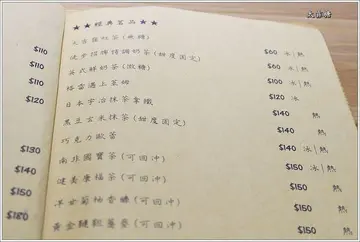 ★★經典茗品★★
大吉嶺紅茶(無糖)
$60 冰|熱
漫步招牌情調奶茶(甜度固定)
$60 冰|熱
英式鮮奶茶(微糖)
$100 冰|熱
$120 冰
日本宇治抹茶拿鐵
$140 熱
黑豆玄米抹茶(甜度固定)
$140 熱
巧克力歐蕾
$140 冰|熱
南非國寶茶(可回沖)
$150 熱
健美康福茶(可回沖)
$150 熱
洋甘菊柚香橼(可回沖)
$150 熱
黃金鏈靼蕎麥(可回沖)
$150 熱
$110
$110
$110
$120
$130
$140
$150
$180